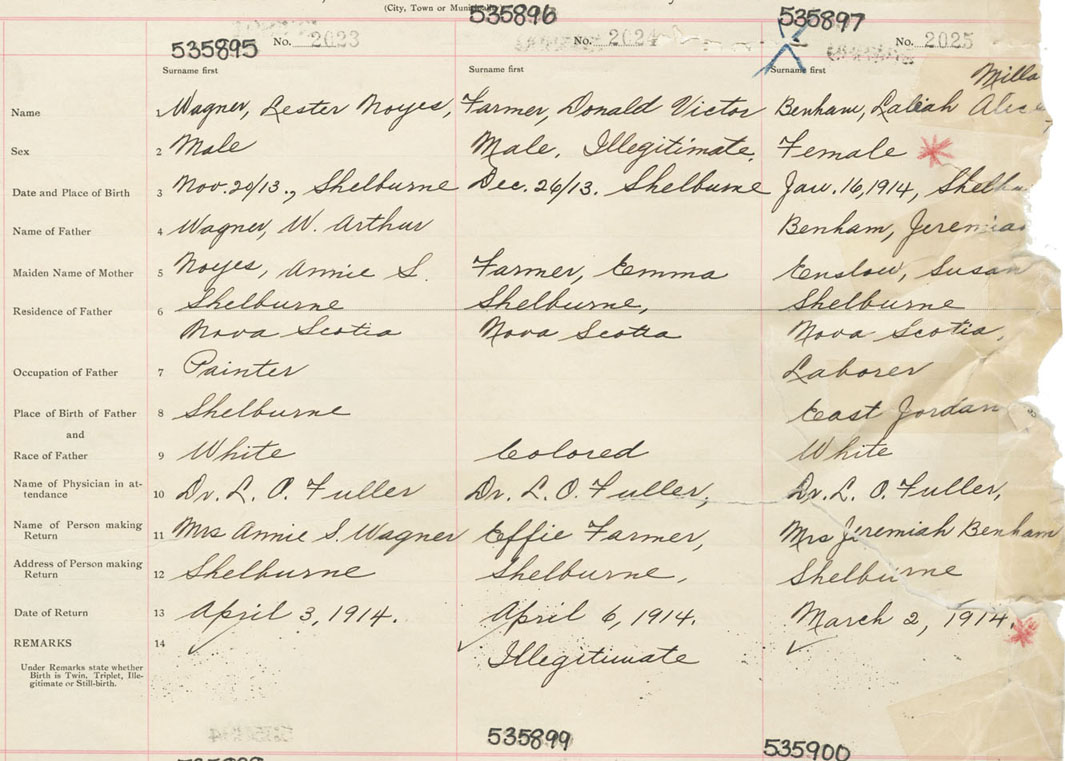 (City, Town or Municipality)
535895 No. 2023 535896 No. 2024 535897 No. 2025
Surname first Surname first Surname first
Milla
Name 1 Wagner, Lester Noyes, Farmer, Donald Victor Benham, Laliah Alice
Sex 2 Male Male, Illegitimate, Female
Date and Place of Birth 3 Nov. 20/13., Shelburne Dec. 26/13. Shelburne Jan. 16, 1914, Shelbu
Name of Father 4 Wagner, W. Arthur Benham, Jeremiah
Maiden Name of Mother 5 Noyes, Annie S. Farmer, Emma Enslow, Susan
Residence of Father 6 Shelburne Shelburne, Shelburne
Nova Scotia Nova Scotia Nova Scotia,
Occupation of Father 7 Painter Laborer
Place of Birth of Father 8 Shelburne East Jordan
and
Race of Father 9 White Colored White
Name of Physician in at-
tendance 10 Dr. L. O. Fuller Dr. L. O. Fuller, Dr. L. O. Fuller,
Name of Person making
Return 11 Mrs Annie S. Wagner Effie Farmer, Mrs Jeremiah Benham
Address of Person making
Return 12 Shelburne Shelburne, Shelburne
Date of Return 13 April 3, 1914. April 6, 1914. March 2, 1914.
REMARKS 14 Illegitimate
Under Remarks state whether
Birth is Twin, Triplet, Ille-
gitimate or Still-birth.
535899 535900